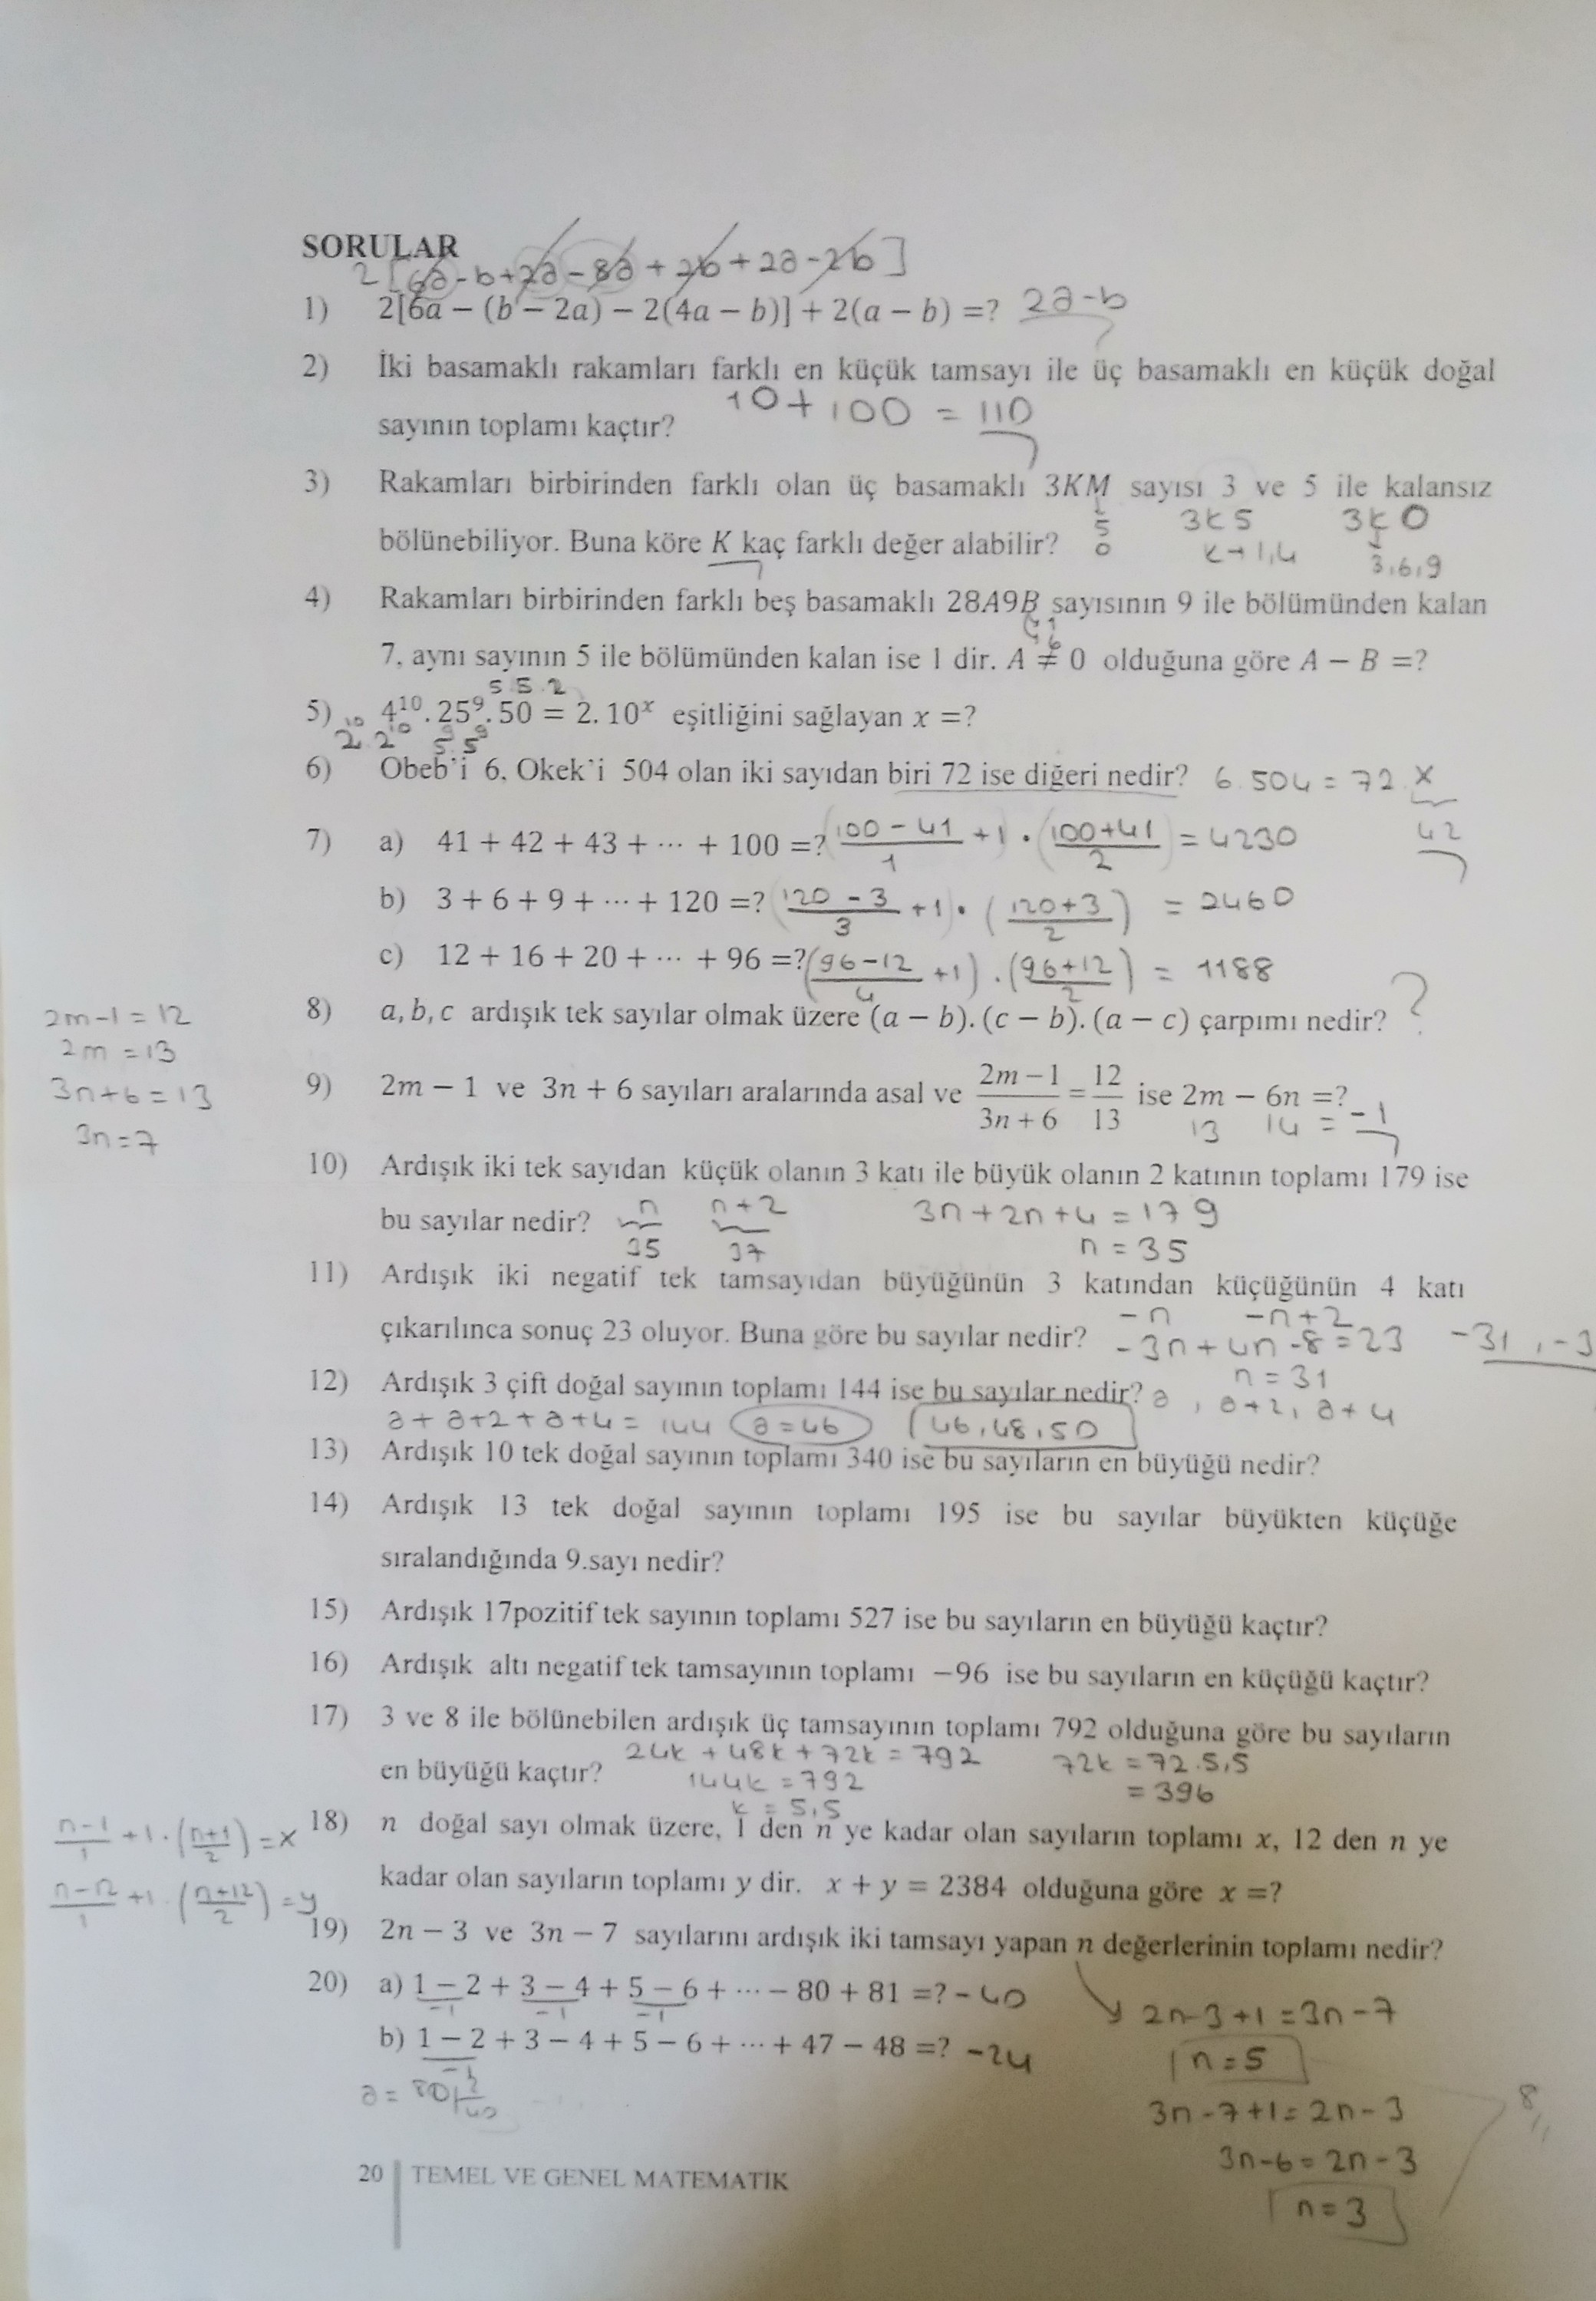 SORULAR
2[6a-b+2a-8a+2b+2a-2b]
1) 2[6a − (b − 2a) − 2(4a − b)] + 2(a − b) =? 2a-b
2) İki basamaklı rakamları farklı en küçük tamsayı ile üç basamaklı en küçük doğal
10+100 = 110
sayının toplamı kaçtır?
3) Rakamları birbirinden farklı olan üç basamaklı 3KM sayısı 3 ve 5 ile kalansız
5 3K5 3K0
bölünebiliyor. Buna köre K kaç farklı değer alabilir? 0 K→1,4 3,6,9
4) Rakamları birbirinden farklı beş basamaklı 28A9B sayısının 9 ile bölümünden kalan
1
6
7, aynı sayının 5 ile bölümünden kalan ise 1 dir. A ≠ 0 olduğuna göre A − B =?
5 5.2
5) 4¹⁰. 25⁹. 50 = 2. 10ˣ eşitliğini sağlayan x =?
2¹⁰.2¹⁰ 5⁹.5⁹
6) Obeb'i 6, Okek'i 504 olan iki sayıdan biri 72 ise diğeri nedir? 6.504 = 72.x
42
7) a) 41 + 42 + 43 + ⋯ + 100 =? (100-41/1 +1).(100+41/2) = 4230
b) 3 + 6 + 9 + ⋯ + 120 =? (120-3/3 +1).(120+3/2) = 2460
c) 12 + 16 + 20 + ⋯ + 96 =? (96-12/4 +1).(96+12/2) = 1188
8) a, b, c ardışık tek sayılar olmak üzere (a − b). (c − b). (a − c) çarpımı nedir? ?
2m-1=12
2m=13
3n+6=13
3n=7
9) 2m − 1 ve 3n + 6 sayıları aralarında asal ve 2m−1/3n+6 = 12/13 ise 2m − 6n =?
13 14 = -1
10) Ardışık iki tek sayıdan küçük olanın 3 katı ile büyük olanın 2 katının toplamı 179 ise
bu sayılar nedir? n n+2 3n+2n+4=179
35 37 n=35
11) Ardışık iki negatif tek tamsayıdan büyüğünün 3 katından küçüğünün 4 katı
-n -n+2
çıkarılınca sonuç 23 oluyor. Buna göre bu sayılar nedir? -3n+4n-8=23 -31,-3
n=31
12) Ardışık 3 çift doğal sayının toplamı 144 ise bu sayılar nedir? a, a+2, a+4
a+a+2+a+4=144 a=46 46,48,50
13) Ardışık 10 tek doğal sayının toplamı 340 ise bu sayıların en büyüğü nedir?
14) Ardışık 13 tek doğal sayının toplamı 195 ise bu sayılar büyükten küçüğe
sıralandığında 9.sayı nedir?
15) Ardışık 17pozitif tek sayının toplamı 527 ise bu sayıların en büyüğü kaçtır?
16) Ardışık altı negatif tek tamsayının toplamı −96 ise bu sayıların en küçüğü kaçtır?
17) 3 ve 8 ile bölünebilen ardışık üç tamsayının toplamı 792 olduğuna göre bu sayıların
24k+48k+72k=792 72k=72.5,5
en büyüğü kaçtır? 144k=792 =396
k=5,5
18) n doğal sayı olmak üzere, 1 den n ye kadar olan sayıların toplamı x, 12 den n ye
kadar olan sayıların toplamı y dir. x + y = 2384 olduğuna göre x =?
n-1/1 +1.(n+1/2)=x
n-12/1 +1.(n+12/2)=y
19) 2n − 3 ve 3n − 7 sayılarını ardışık iki tamsayı yapan n değerlerinin toplamı nedir?
20) a) 1 − 2 + 3 − 4 + 5 − 6 + ⋯ − 80 + 81 =? -40
-1 -1 -1
b) 1 − 2 + 3 − 4 + 5 − 6 + ⋯ + 47 − 48 =? -24
-1
a= 80 2
40
2n-3+1=3n-7
n=5
3n-7+1=2n-3
3n-6=2n-3
n=3
8
20 TEMEL VE GENEL MATEMATİK